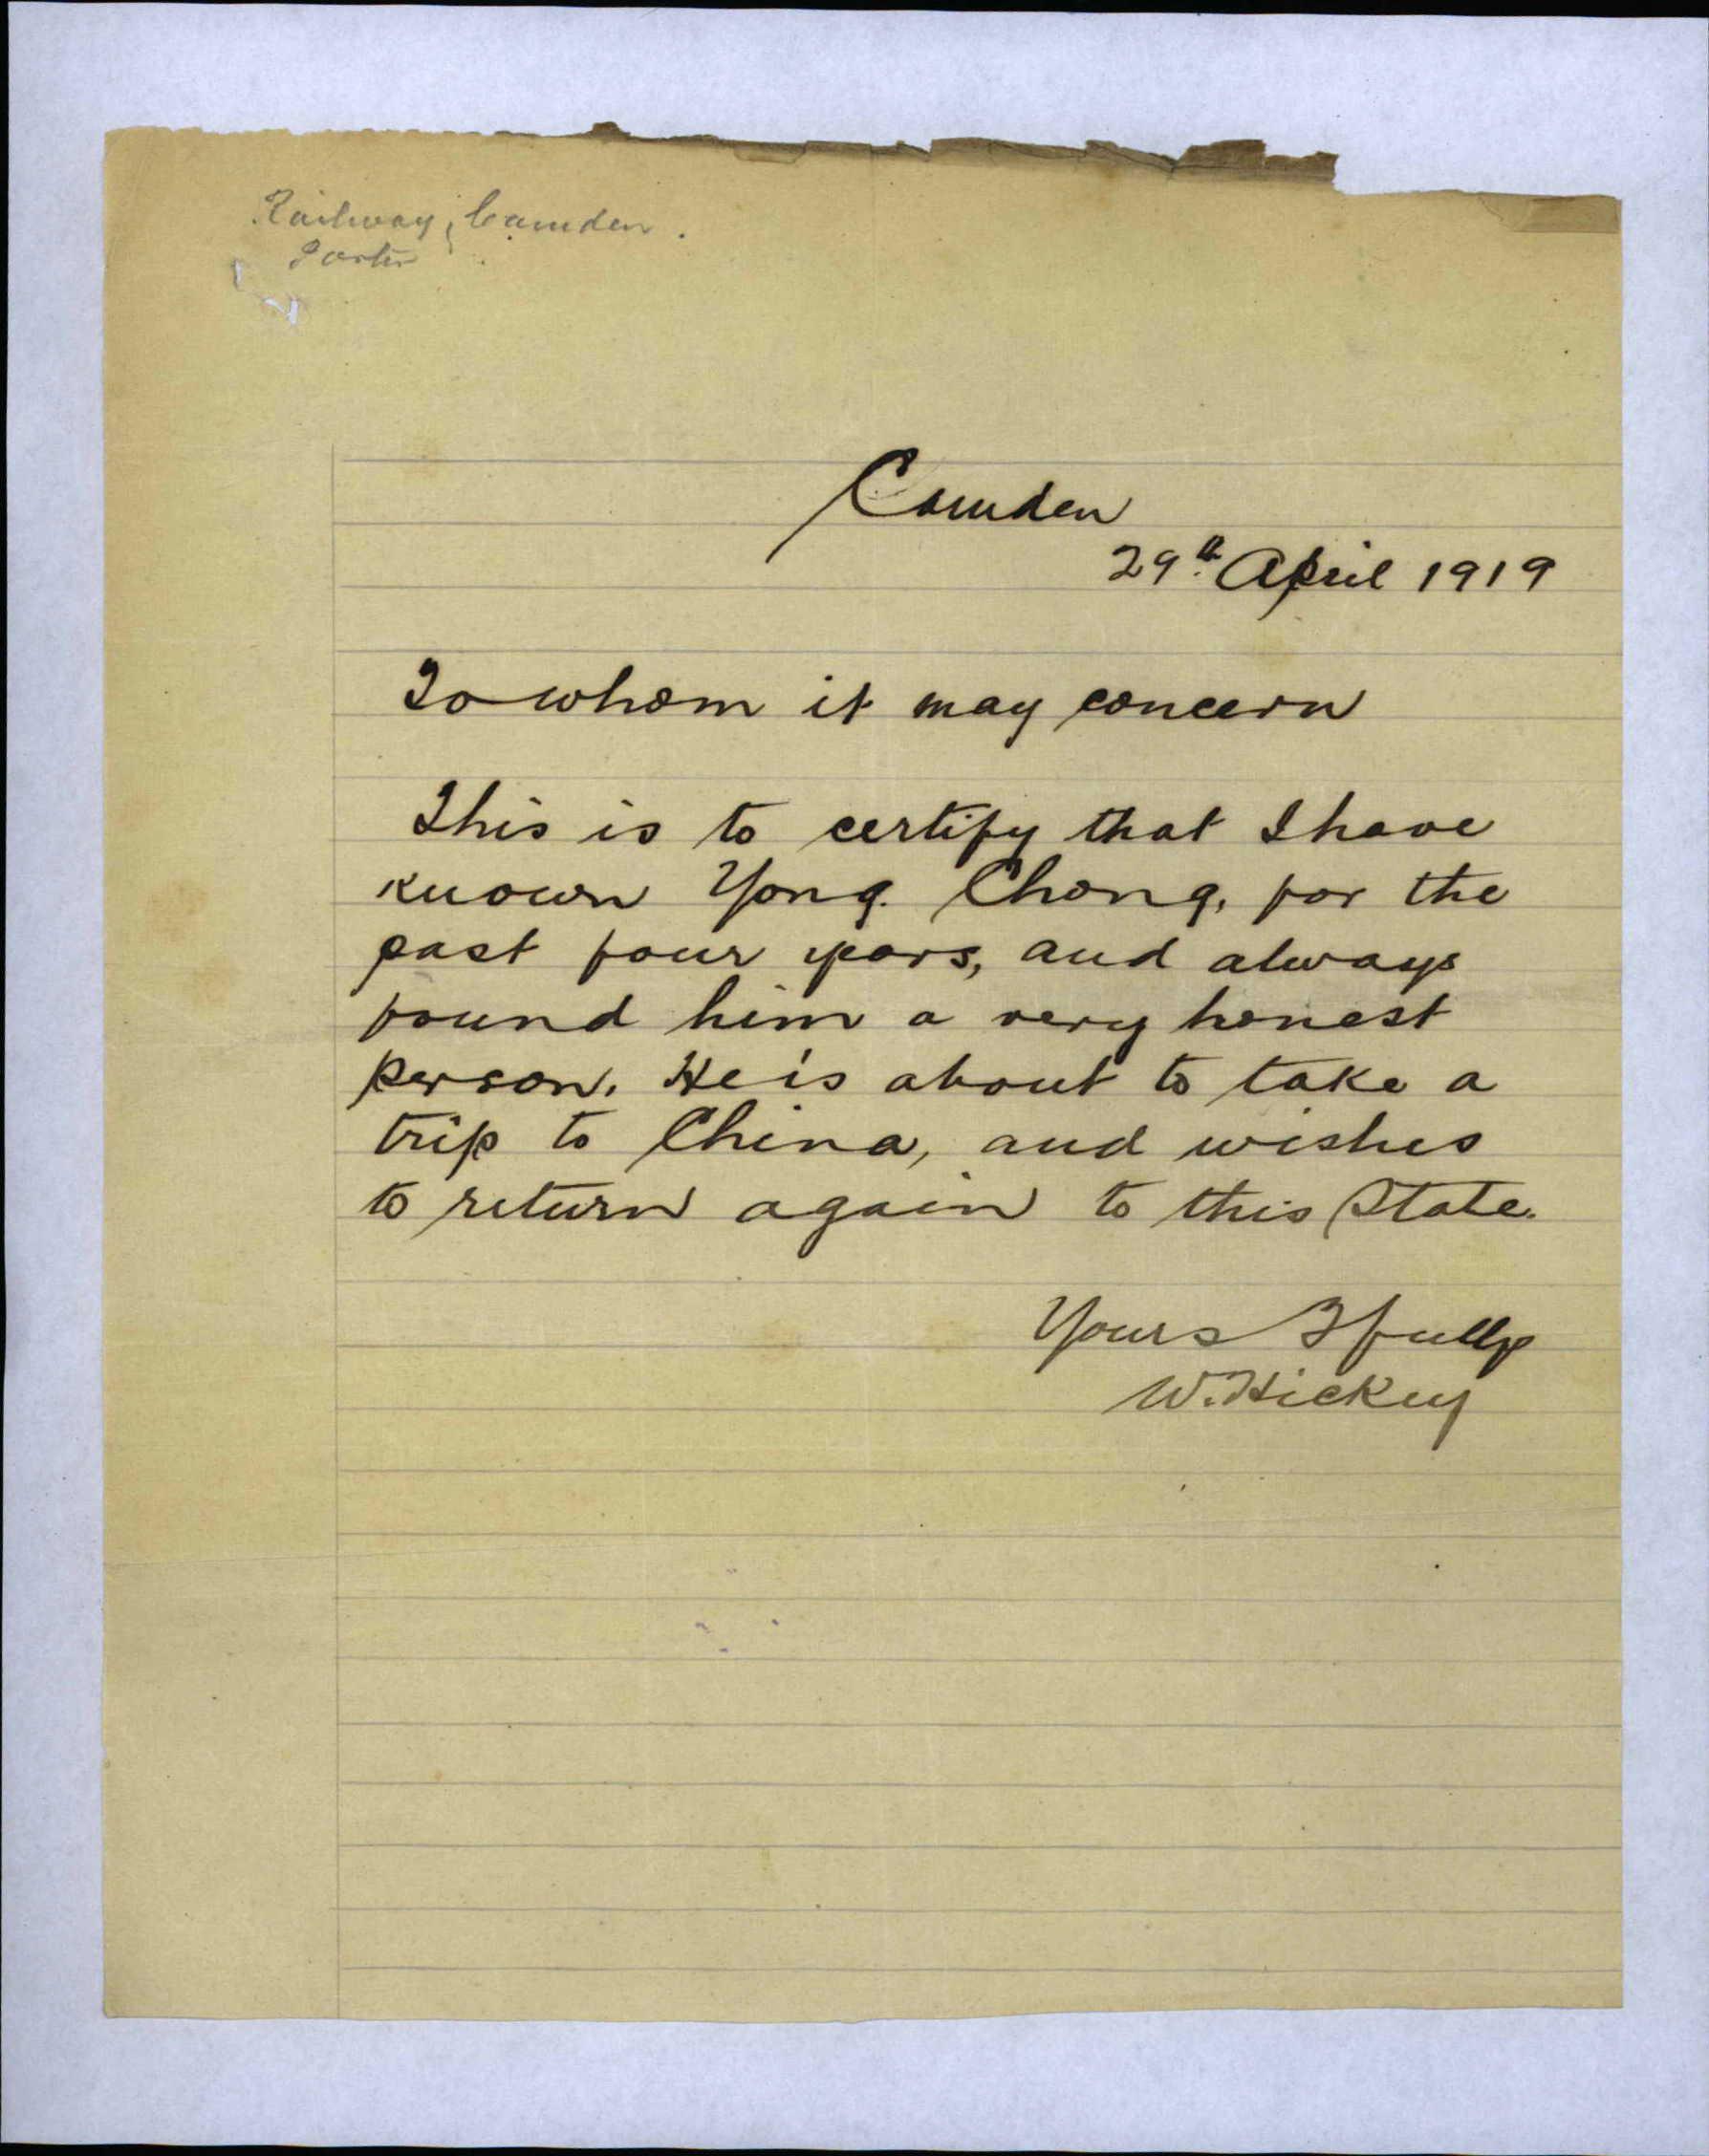 Railway, Camden.
Porter
Camden
29th April 1919
To whom it may concern
This is to certify that I have
known Yong. Chong, for the
past four years, and always
found him a very honest
person. He is about to take a
trip to China, and wishes
to return again to this State.
Yours Tfully
W. Hickey